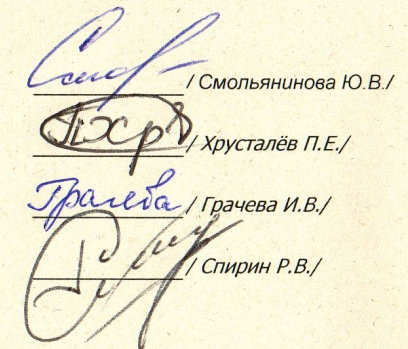 / Смольянинова Ю.В./
/ Хрусталёв П.Е./
Грачева / Грачева И.В./
/ Спирин Р.В./